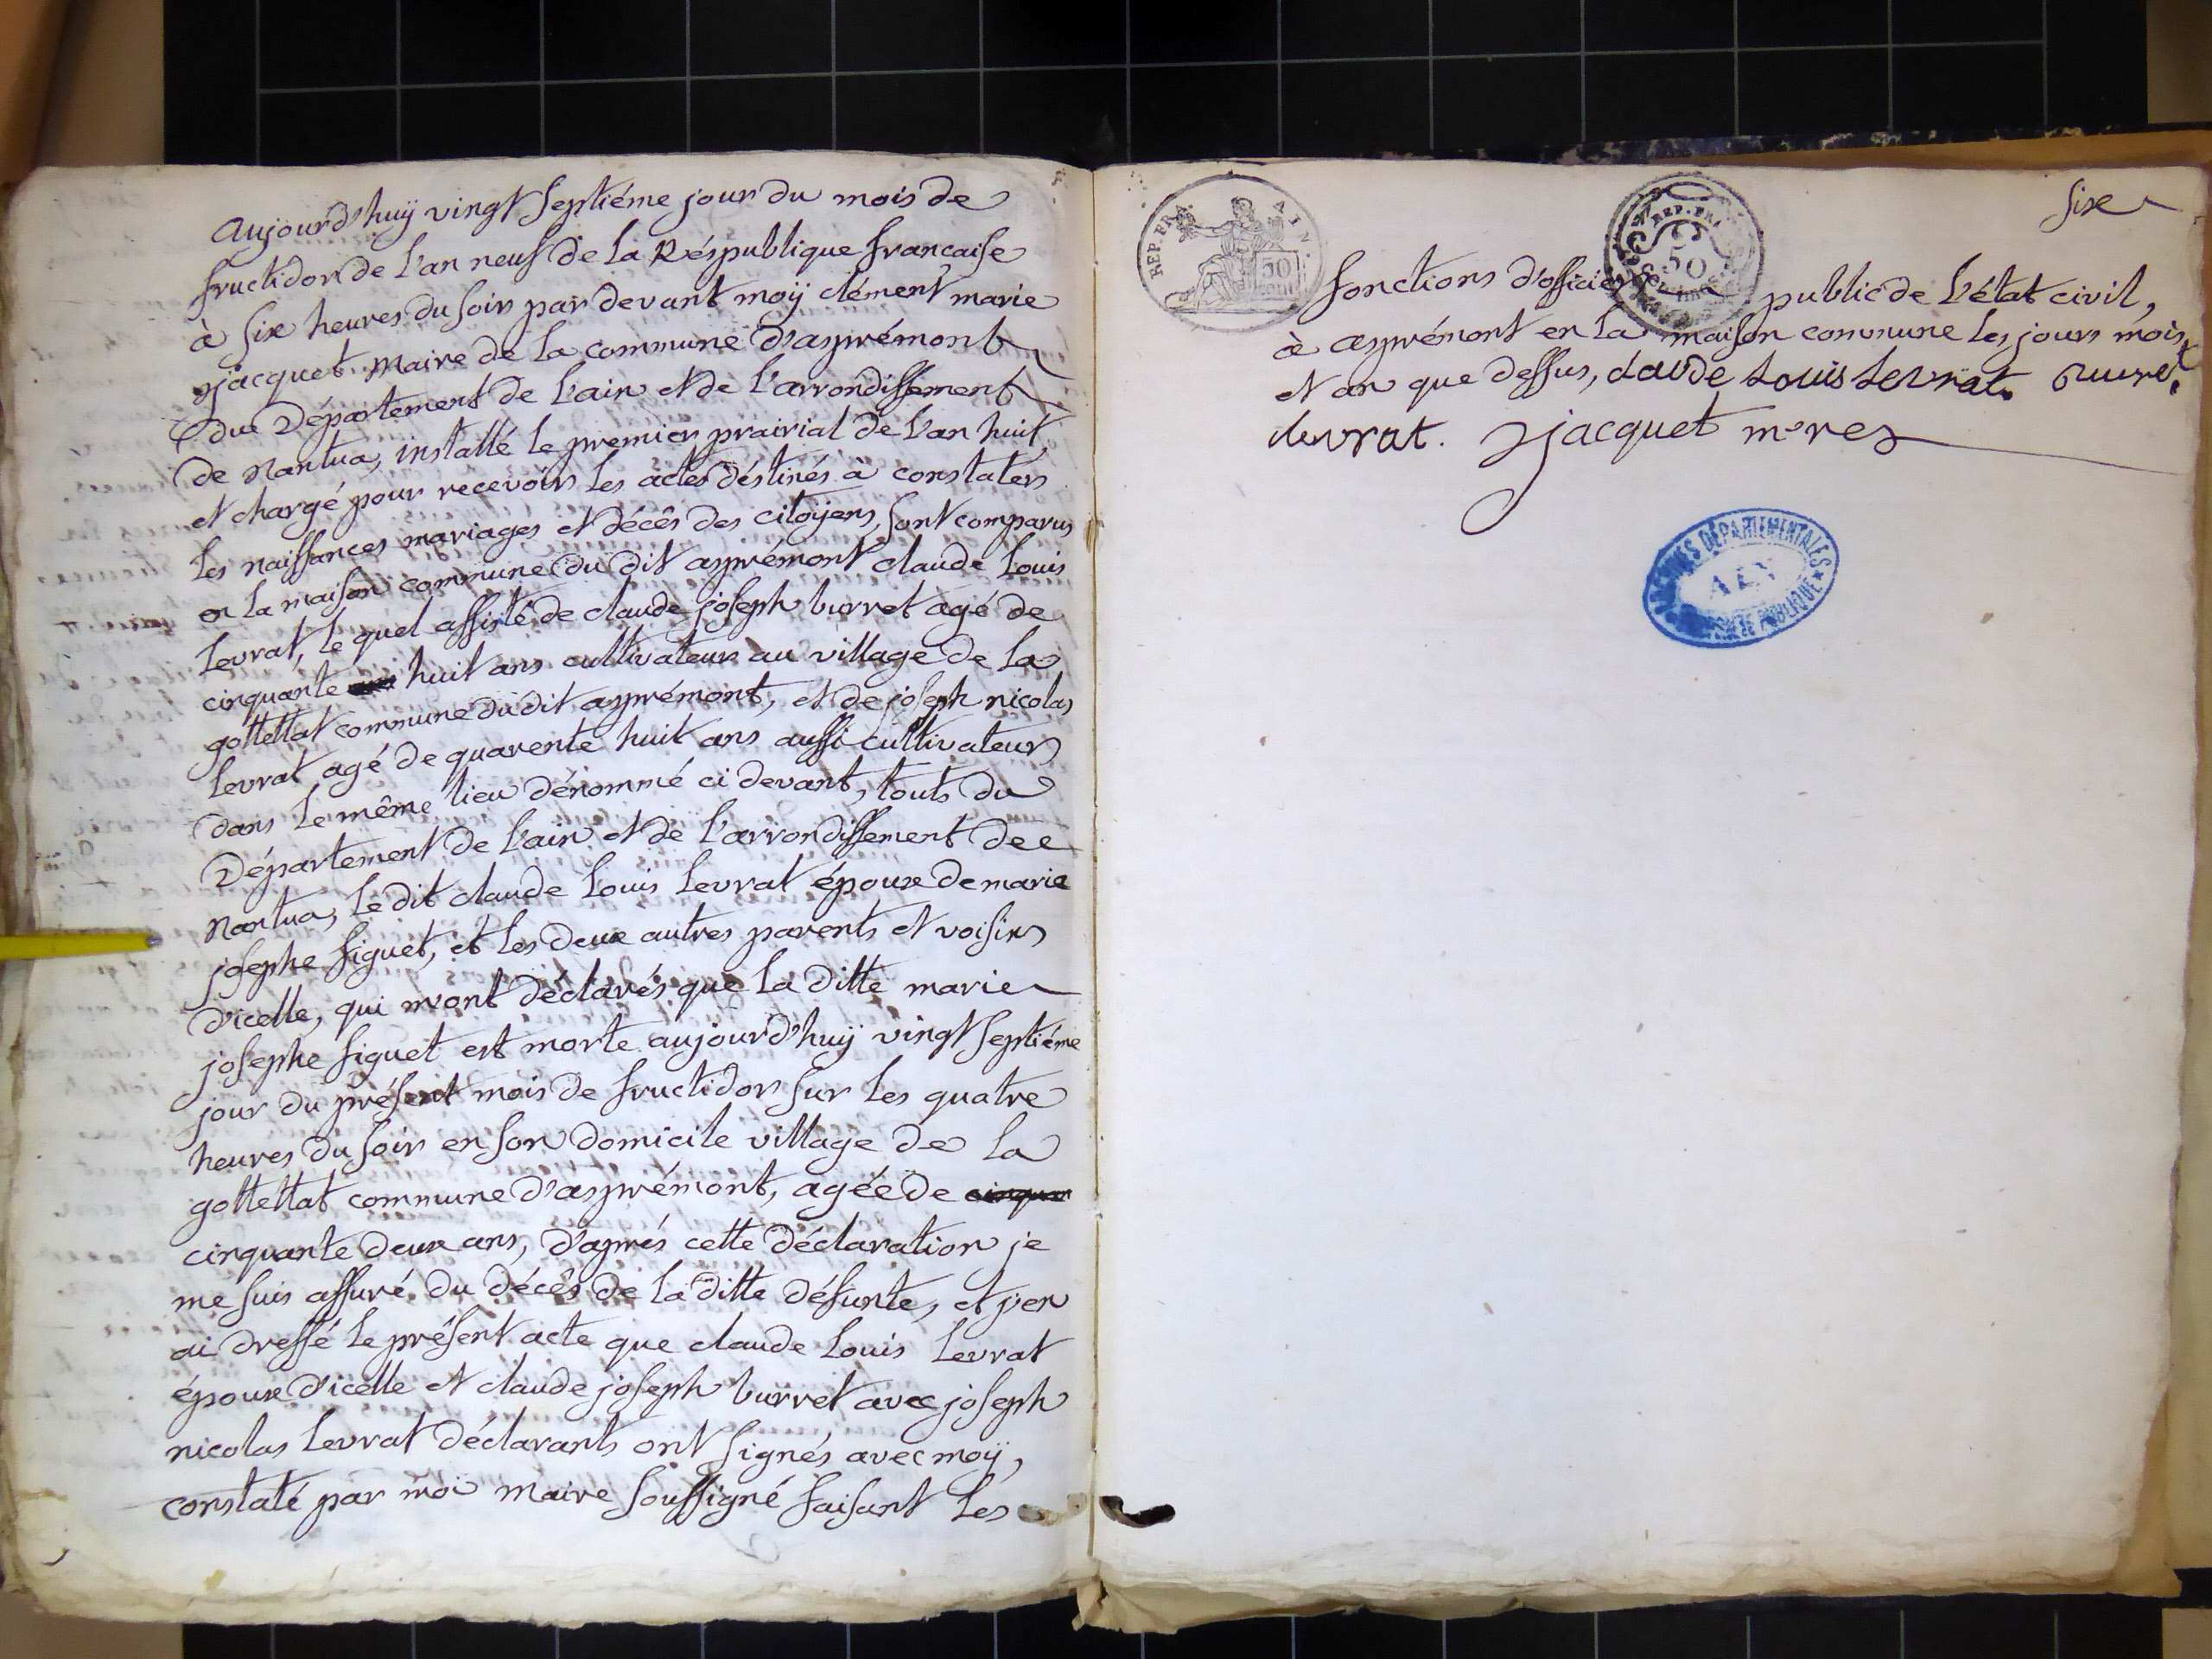 Aujourd'huÿ vingt septiéme jour du mois de
fructidor de l'an neuf de la Républiqué francaise
à six heures du soir par devant moÿ clément marie
jacquet maire de la commune d'asprémont
du Département de l'ain et de l'arrondissement
de Nantua, installé le premier prairial de l'an huit
et chargé pour recevoir les actes déstinés à constater
les naissances mariages et décês des citoÿens, sont comparus
en la maison commune du dit asprémont claude Louis
Levrat, le quel assisté de claude joseph burret agé de
cinquante huit ans cultivateur au village de la
gottettat commune dudit asprémont, et de joseph nicolas
Levrat agé de quarente huit ans aussi cultivateur
dans le même lieu dénommé ci devant, touts du
Département de l'ain et de l'arrondissement de
Nantua, le dit claude Louis Levrat époux de marie
josephe figuet, et les deux autres parents et voisins
d'icelle, qui m'ont déclarés que la ditte marie
josephe figuet est morte aujourd'huÿ vingt septiéme
jour du présent mois de fructidor sur les quatre
heures du soir en son domicile village de la
gottettat commune d'asprémont, agée de
cinquante deux ans, d'aprés cette déclaration je
me suis assuré du décês de la ditte défunte, et j'en
ai dressé le présent acte que claude Louis Levrat
époux d'icelle et claude joseph burret avec joseph
nicolas Levrat déclarants ont signés avec moÿ,
constaté par moi maire soussigné faisant les
six
REP. FRA. AIN.
50
REP. FRA.
50
fonctions d'officier public de l'état civil,
à asprémont en la maison commune les jours mois
et an que dessus, claude Louis Levrat. Burret
Levrat. jacquet m.re
ARCHIVES DÉPARTEMENTALES
AIN
PUBLIQUE